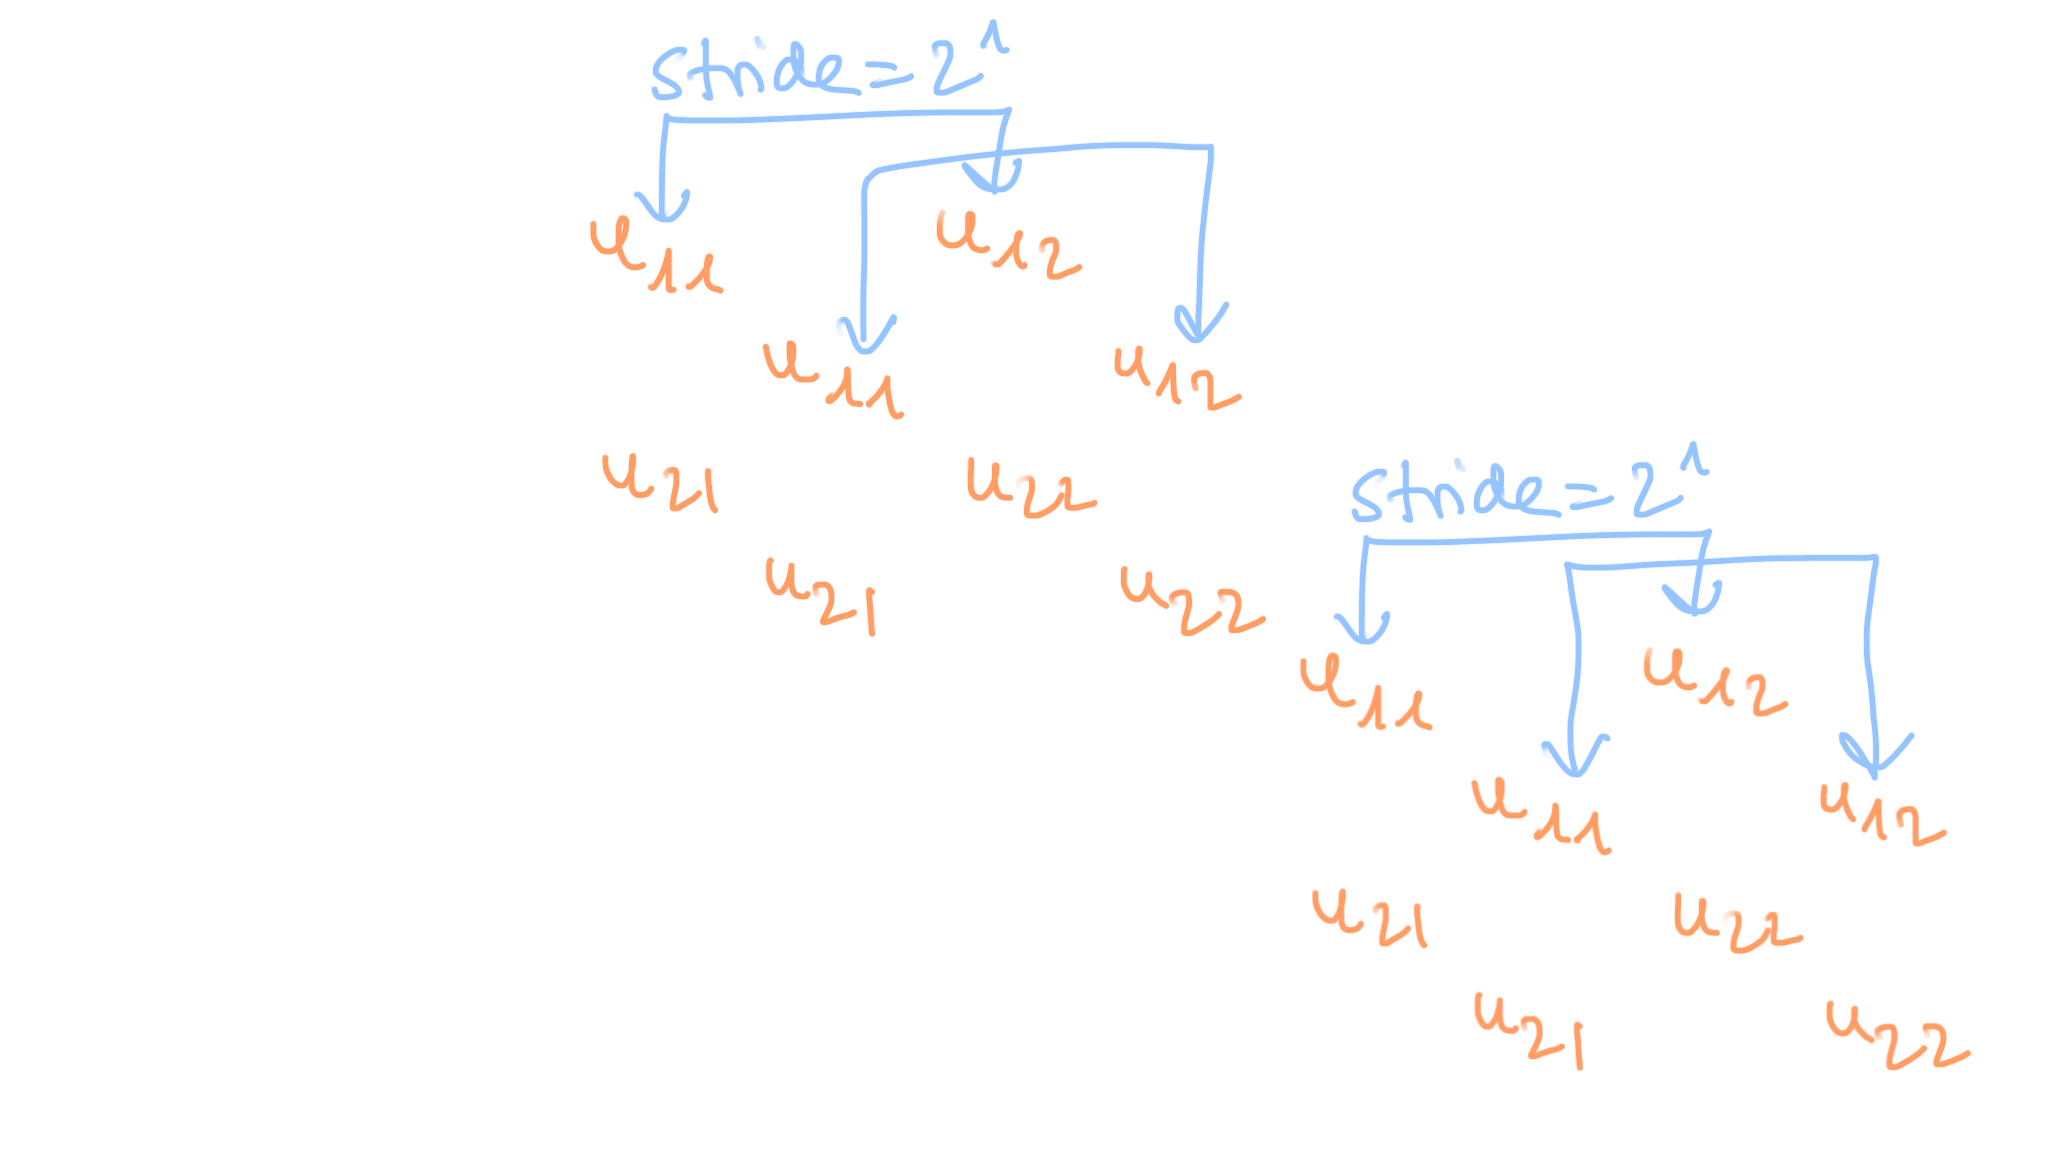 stride=2¹
u₁₁ u₁₂
u₁₁ u₁₂
u₂₁ u₂₂
u₂₁ u₂₂
stride=2¹
u₁₁ u₁₂
u₁₁ u₁₂
u₂₁ u₂₂
u₂₁ u₂₂